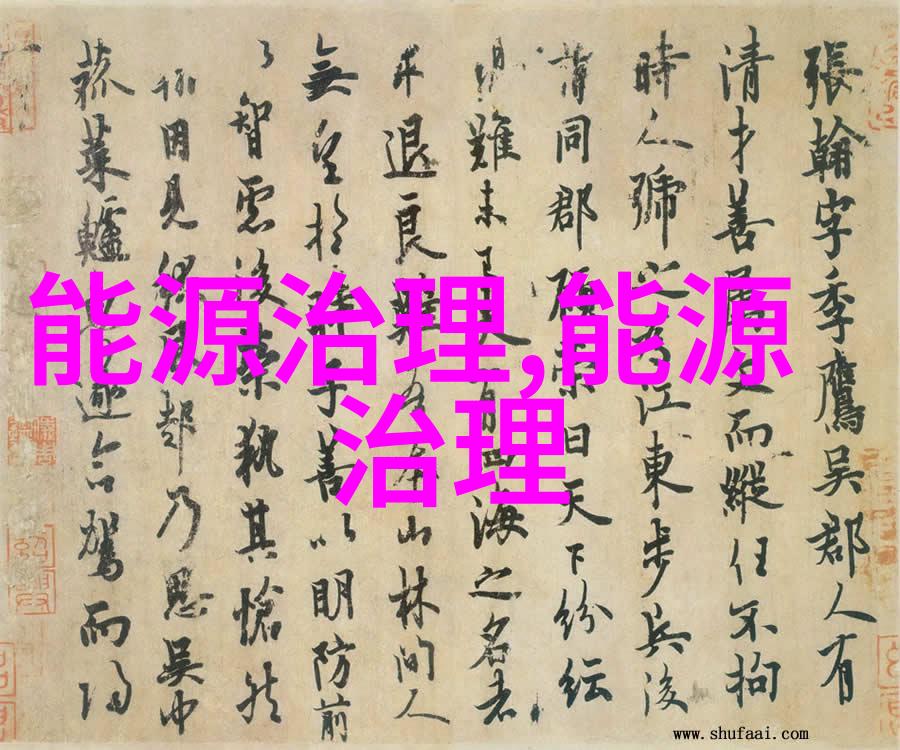 張翰字季鷹吳郡人有
清才善屬文而縱任不拘
時人號之為江東步兵後
謂同郡顧榮曰天下紛紜
禍難未已夫有四海之名者
求退良難吾本山林間人
無望於時子善以明防前
以智慮後榮執其愴然
翰因見秋風起乃思吳中
菰菜鱸魚遂命駕而歸
能源治理,能源
治理
www.shufaai.com